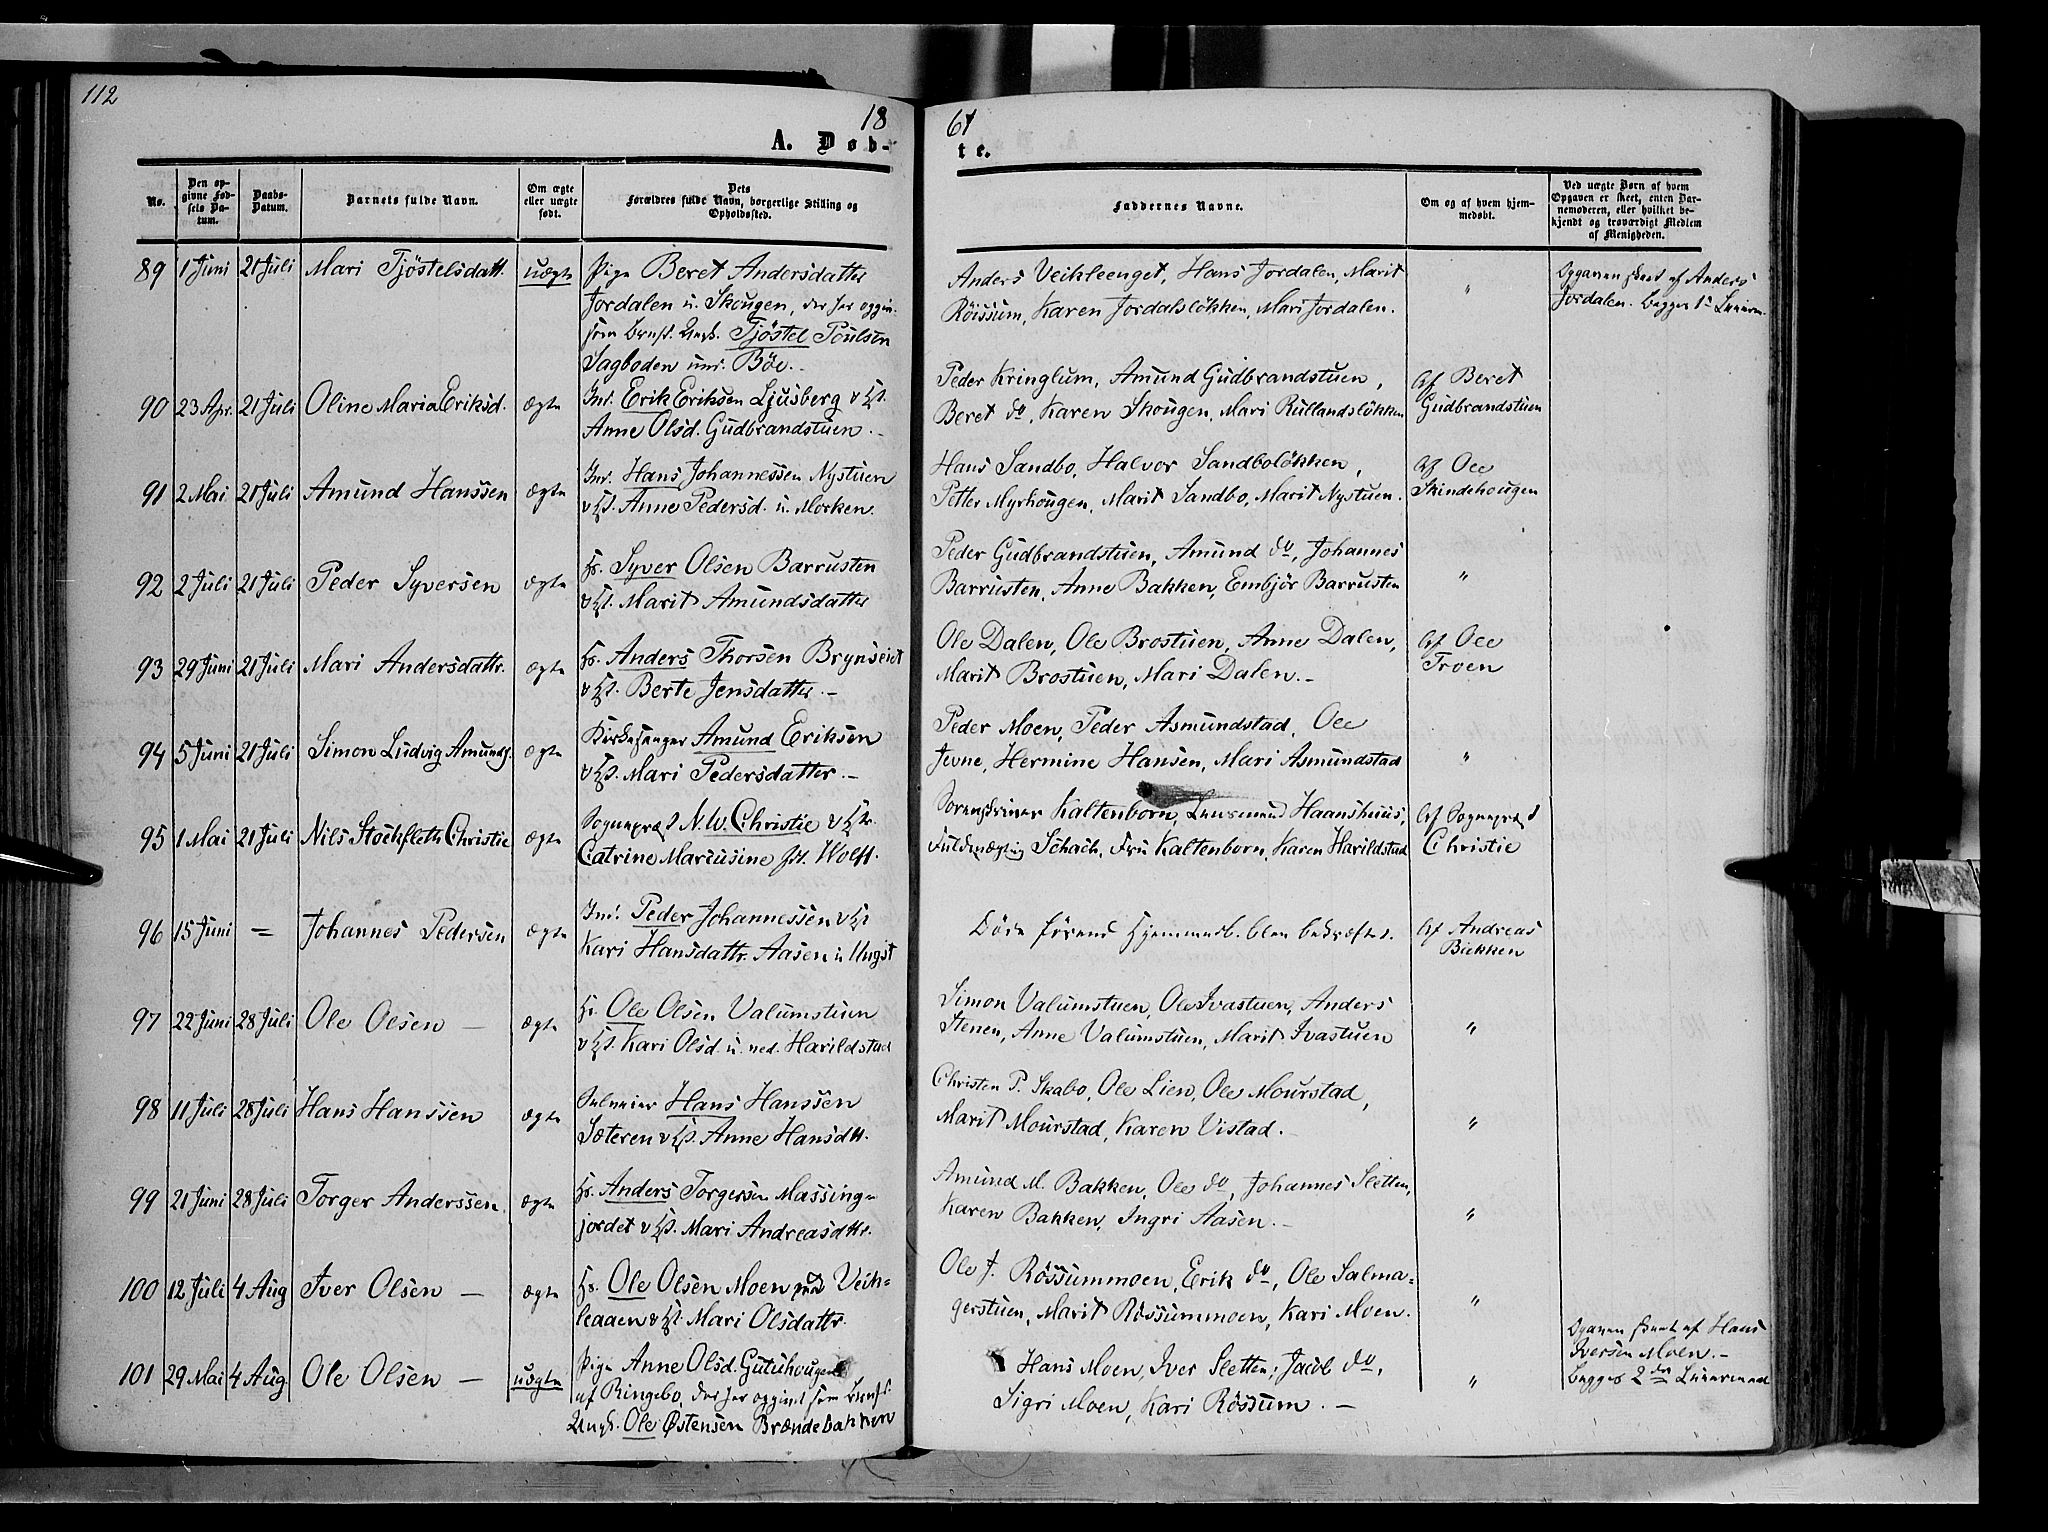 112
18 61
A. Døb-
te.
No.
Den op-
givne Fød-
sels Da-
tum.
Daabs-
Datum.
Barnets fulde Navn.
Om ægte
eller uægte
født.
Dets
Forældres fulde Navn, borgerlige Stilling og
Opholdssted.
Faddernes Navne.
Om og af hvem hjem-
medøbt.
Ved uægte Børn af hvem
Opgaven er skeet, enten Bar-
nemoderen, eller hvilket be-
kjendt og troværdigt Medlem
af Menigheden.
89 1 Juni 21 Juli Mari Tjöstelsdatt. uægte
Pige Beret Andersdatter
Jordalen u. Skougen, der har opgiv.
som Barnf. Ungk. Tjöstel Poulsen
Sagboden und. Böe.
Anders Veikleenget, Hans Jordalen, Marit
Röissum, Karen Jordalslökken, Mari Jordalen.
"
Opgaven skeet af Anders
Jordalen. Begges 1ste
90 23 Apr. 21 Juli Oline Maria Eriksd. ægte
Ind. Erik Eriksen Ljusberg
Anne Olsd. Gudbrandstuen.
Peder Kringlum, Amund Gudbrandstuen,
Beret do, Karen Skougen, Mari Rullandslökken
Af Beret
Gudbrandstuen
91 2 Mai 21 Juli Amund Hanssen ægte
Ind. Hans Johannessen Nystuen
Anne Pedersd. u. Morken.
Hans Sandbo, Halvor Sandbolökken,
Petter Myrhougen, Marit Sandbo, Marit Nystuen.
Af Ole
Skindehougen
92 2 Juli 21 Juli Peder Syversen ægte
Syver Olsen Barrusten
Marit Amundsdatter
Peder Gudbrandstuen, Amund do, Johannes
Barrusten, Anne Bakken, Embjör Barrusten
"
93 29 Juni 21 Juli Mari Andersdattr. ægte
Anders Thorsen Brynseiet
Berte Jensdatter.
Ole Dalen, Ole Brostuen, Anne Dalen,
Marit Brostuen, Mari Dalen.
Af Ole
Troen
94 5 Juni 21 Juli Simon Ludvig Amunds. ægte
Kirkesanger Amund Eriksen
Mari Pedersdatter.
Peder Moen, Peder Asmundstad, Ole
Jevne, Hermine Hansen, Mari Asmundstad
"
95 1 Mai 21 Juli Nils Stockfleth Christie ægte
Sognepræst N. W. Christie
Catrine Marcusine f. Wolff.
Sorenskriver Kaltenborn, Lensmand Haanshuus,
Fuldmægtig Schach, Fru Kaltenborn, Karen Harildstad
Af Sognepræst
Christie
96 15 Juni = Johannes Pedersen ægte
Ind. Peder Johannessen
Kari Hansdattr. Aasen u.
Döde förend Hjemmed. blev bekræftet.
Af Andreas
Bækken
97 22 Juni 28 Juli Ole Olsen ægte
Ole Olsen Valumstuen
Kari Olsd. u. ned. Harildstad
Simon Valumstuen, Ole Ivastuen, Anders
Stenen, Anne Valumstuen, Marit Ivastuen
"
98 11 Juli 28 Juli Hans Hanssen ægte
Selveier Hans Hanssen
Sæteren Anne Hansdtt.
Christen P. Skabo, Ole Lien, Ole Mourstad,
Marit Mourstad, Karen Vistad.
"
99 21 Juni 28 Juli Torger Anderssen. ægte
Anders Torgersen Massing-
jordet Mari Andreasdttr.
Amund M. Bakken, Ole do, Johannes Sletten,
Karen Bakken, Ingri Aasen.
"
100 12 Juli 4 Aug Iver Olsen ægte
Ole Olsen Moen und Veik-
leaaen Mari Olsdattr.
Ole J. Rössummoen, Erik do, Ole Salma-
gerstuen, Marit Rössummoen, Kari Moen.
"
101 29 Mai 4 Aug Ole Olsen uægte
Pige Anne Olsd. Gutuhougen
af Ringebo, der har opgivet som Barnf.
Ungk. Ole Østensen Brændebakken
Hans Moen, Iver Sletten, Jacob do,
Sigri Moen, Kari Rössum.
"
Opgaven skeet af Hans
Iversen Moen.
Begges 2det